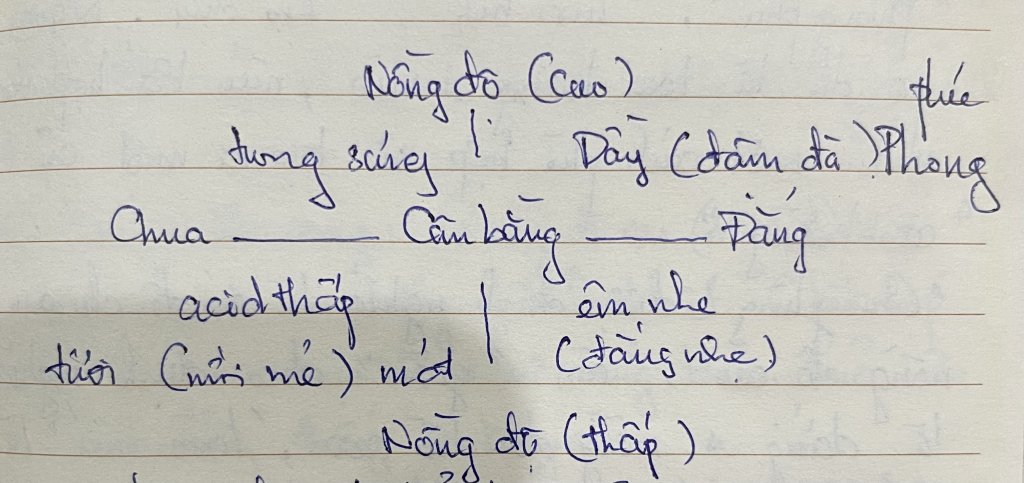 Nồng độ (Cao)
phức
tưng sáng | Dầy (đâm đà) Phong
Chua ——— Cân bằng ——— Đắng
acid thấp | êm nhẹ
tươi (mới mẻ) mát (đắng nhẹ)
Nồng độ (thấp)